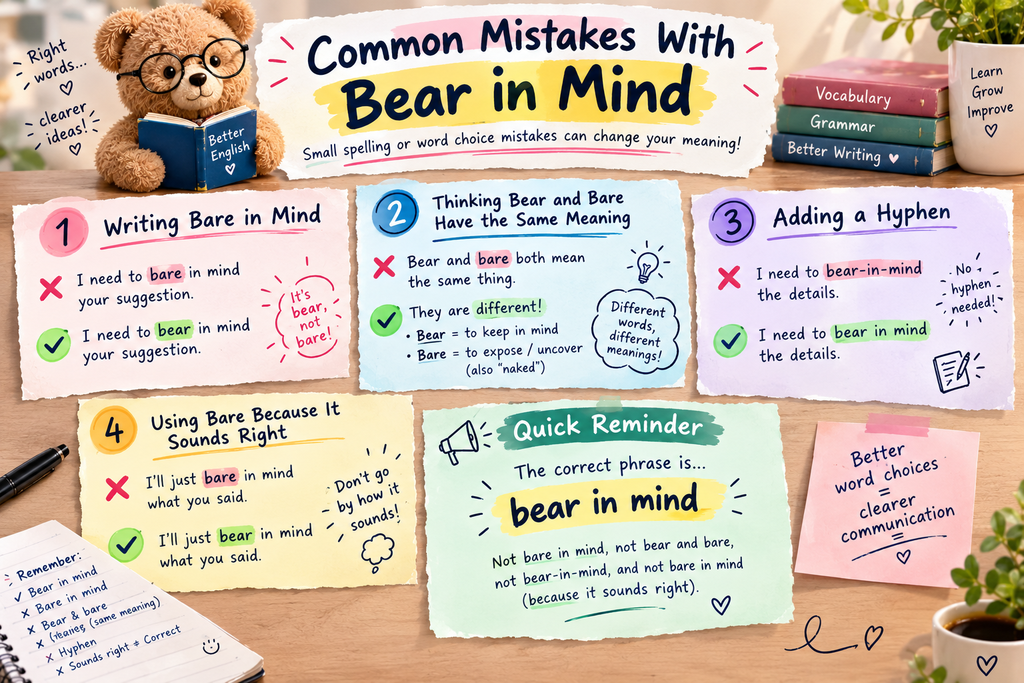 Right
words...
clearer
ideas!
Better
English
Common Mistakes With
Bear in Mind
Small spelling or word choice mistakes can change your meaning!
Vocabulary
Grammar
Better Writing
Learn
Grow
Improve
1 Writing Bare in Mind
I need to bare in mind
your suggestion.
I need to bear in mind
your suggestion.
It's
bear,
not
bare!
2 Thinking Bear and Bare
Have the Same Meaning
Bear and bare both mean
the same thing.
They are different!
• Bear = to keep in mind
• Bare = to expose / uncover
(also "naked")
Different
words,
different
meanings!
3 Adding a Hyphen
I need to bear-in-mind
the details.
I need to bear in mind
the details.
No
hyphen
needed!
4 Using Bare Because It
Sounds Right
I'll just bare in mind
what you said.
I'll just bear in mind
what you said.
Don't go
by how it
sounds!
Quick Reminder
The correct phrase is...
bear in mind
Not bare in mind, not bear and bare,
not bear-in-mind, and not bare in mind
(because it sounds right).
Better
word choices
=
clearer
communication
Remember:
Bear in mind
Bare in mind
Bear & bare
(same meaning)
Hyphen
Sounds right ≠ Correct